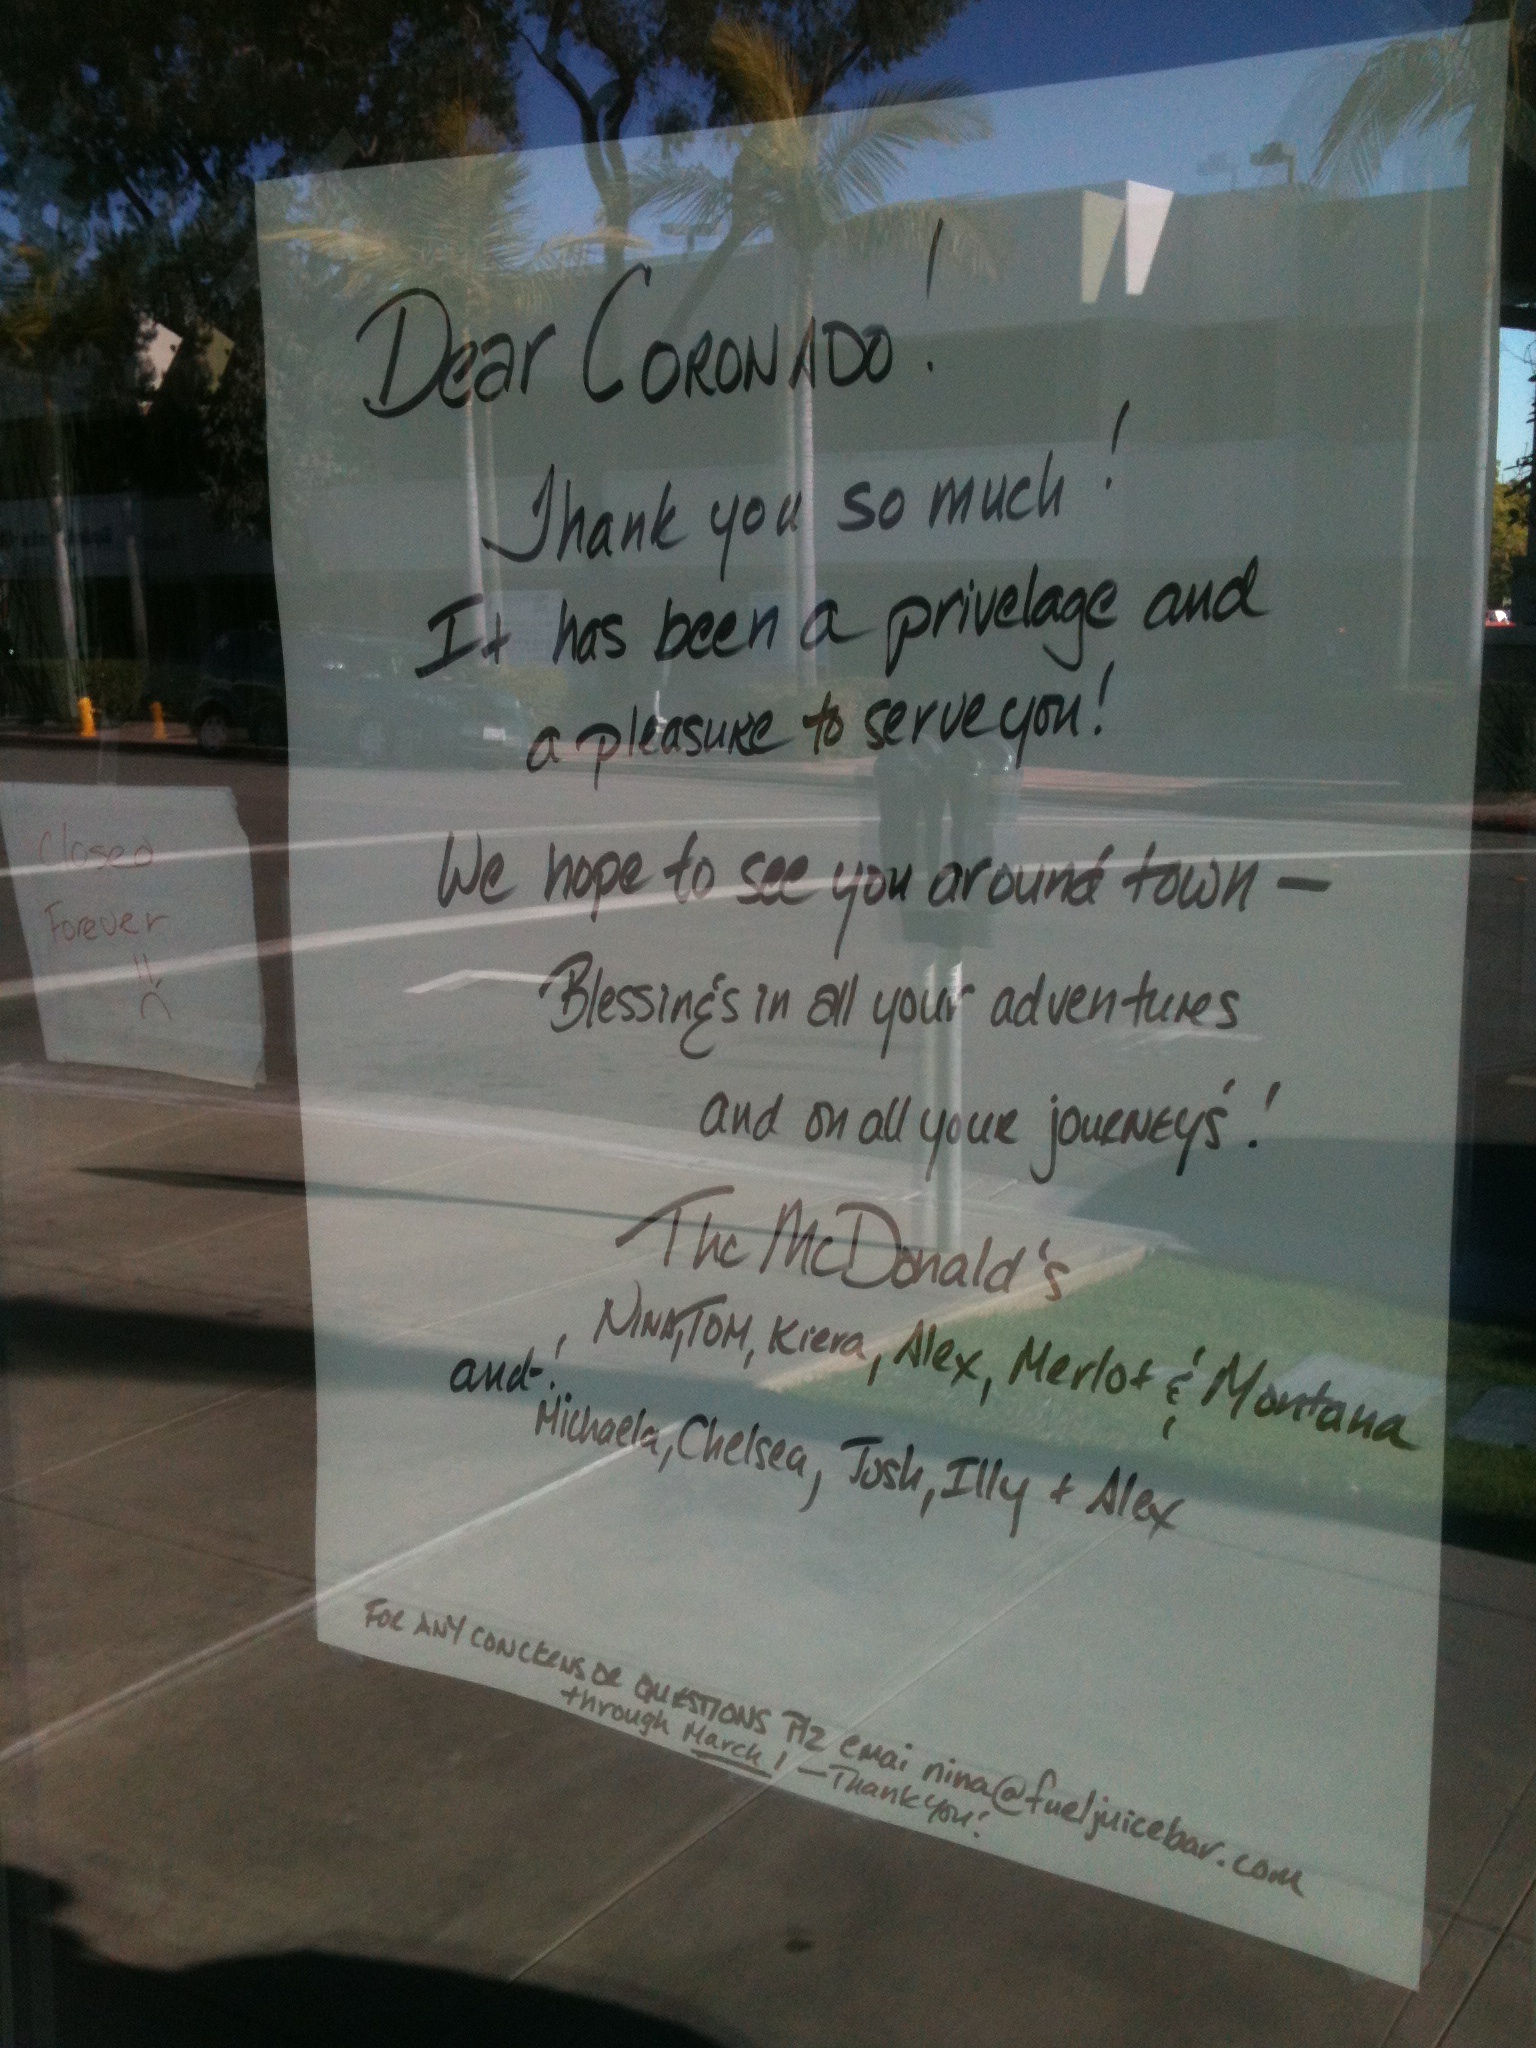 Dear CORONADO!
Thank you so much!
It has been a privelage and
a pleasure to serve you!
We hope to see you around town -
Blessings in all your adventures
and on all your journeys!
The McDonald's
NINA, TOM, Kiera, Alex, Merlot & Montana
and!
Michaela, Chelsea, Josh, Illy + Alex
FOR ANY CONCERNS OR QUESTIONS Plz emai nina@fueljuicebar.com
through March 1 - Thank you!
Closed
Forever